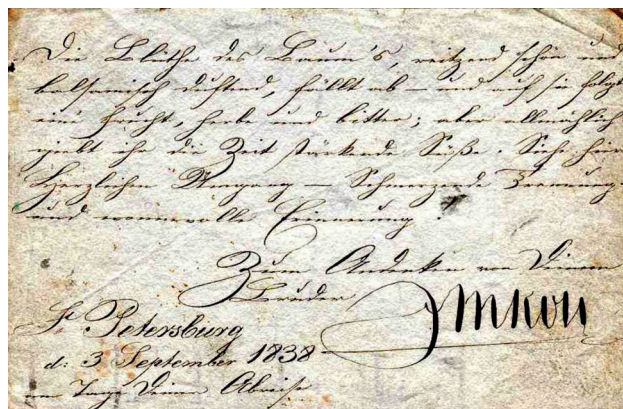 Die Blüthe des Baum's, reitzend schön und
balsamisch duftend, fällt ab – und auf sie folgt
eine Frucht, herbe und bitter; aber allmählich
giebt ihr die Zeit stärkende Süße. Siehe hier
Herzlichen Umgang – Schmerzende Trennung
und wonnevolle Erinnerung!
Zum Andenken von Deinem
Bruder
St Petersburg
d: 3 September 1838
am Tage Deiner Abreise